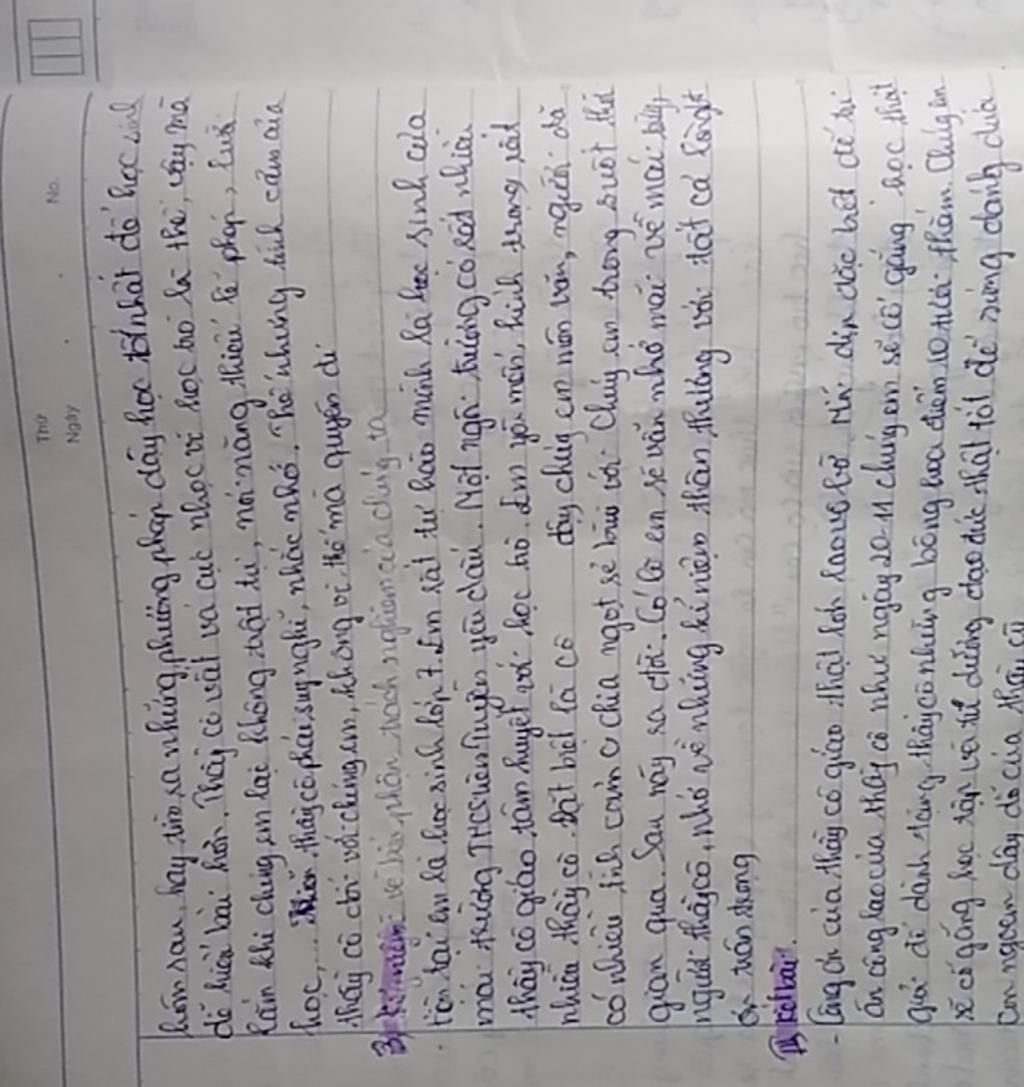 Thứ
Ngày
No.
hôm sau, hay tìm ra những phương pháp dạy học tốt nhất để học sinh
dễ hiểu bài hơn. Thầy cô vất vả cực nhọc vì học trò là thế, vậy mà
lắm khi chúng em lại không trật tự, nói năng thiếu lễ phép, lười
học,... khiến thầy cô phải suy nghĩ, nhắc nhở. Thế nhưng tình cảm của
thầy cô đối với chúng em, không vì thế mà quyên đi
3, về bổn phận trách nghiệm của chúng ta
- Hiện tại em là học sinh lớp 7. Em rất tự hào mình là học sinh của
mái trường THCS yêu dấu. Một ngôi trường có rất nhiều
thầy cô giáo tâm huyết với học trò. Em yêu mến, kính trọng rất
nhiều thầy cô. Đặt biệt là cô dạy chúng em môn văn, người đã
có nhiều tình cảm chia ngọt sẻ bùi với chúng em trong suốt thời
gian qua. Sau này ra đời. Có lẽ em sẽ vẫn nhớ mãi về mái trường,
người thầy cô, nhớ về những kỉ niệm thân thương với tất cả lòng
ơn trân trọng
III, Kết bài:
- Công ơn của thầy cô giáo thật lớn lao Nhân dịp đặc biệt để tri
ân công lao của thầy cô như ngày 20-11 chúng em sẽ cố gắng học thật
giỏi để dành tặng thầy cô những bông hoa điểm 10 tươi thắm. Chúng em
sẽ cố gắng học tập và tu dưỡng đạo đức thật tốt để xứng đáng chữa
con ngoan dạy dỗ của thầy cô